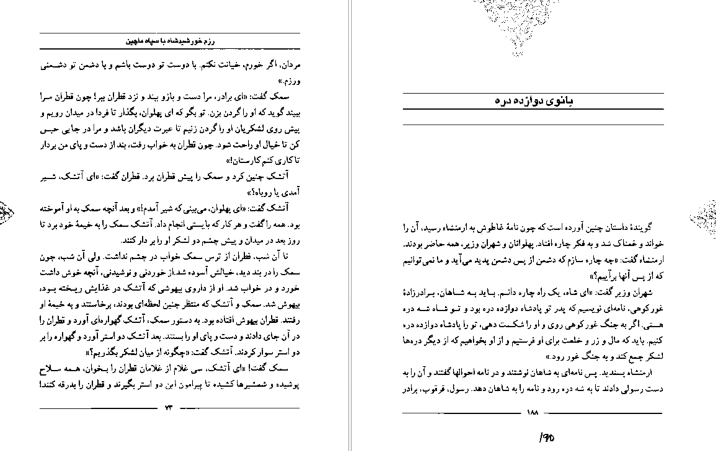 رزم خورشیدشاه با سپاه ماهین
مردان، اگر خورم، خیانت نکنم. با دوست تو دوست باشم و با دشمن تو دشمنی
ورزم.»
سمک گفت: «ای برادر، مرا دست و بازو ببند و نزد قطران ببر! چون قطران مرا
ببیند گوید که او را گردن بزن. تو بگو که ای پهلوان، بگذار تا فردا در میدان رویم و
پیش روی لشکریان او را گردن زنیم تا عبرت دیگران باشد و مرا در جایی حبس
کن تا خیال او راحت شود. چون قطران به خواب رفت، بند از دست و پای من بردار
تا کاری کنم کارستان!»
آتشک چنین کرد و سمک را پیش قطران برد. قطران گفت: «ای آتشک، شیر
آمدی یا روباه؟»
آتشک گفت: «ای پهلوان، می‌بینی که شیر آمدم!» و بعد آنچه سمک به او آموخته
بود، همه را گفت و هر کار که بایستی انجام داد. آتشک سمک را به خیمهٔ خود برد تا
روز بعد در میدان و پیش چشم دو لشکر او را بر دار کنند.
تا آن شب، قطران از ترس سمک خواب در چشم نداشت. ولی آن شب، چون
سمک را در بند دید، خیالش آسوده شد. از خوردنی و نوشیدنی، آنچه خوش داشت
خورد و در خواب شد. او از داروی بیهوشی که آتشک در غذایش ریخته بود،
بیهوش شد. سمک و آتشک که منتظر چنین لحظه‌ای بودند، برخاستند و به خیمهٔ او
رفتند. قطران بیهوش افتاده بود. به دستور سمک، آتشک گهواره‌ای آورد و قطران را
در آن جای دادند و دست و پای او را بستند. بعد آتشک دو استر آورد و گهواره را بر
دو استر سوار کردند. آتشک گفت: «چگونه از میان لشکر بگذریم؟»
سمک گفت: «ای آتشک، سی غلام از غلامان قطران را بخوان، همه سلاح
پوشیده و شمشیرها کشیده تا پیرامون این دو استر بگیرند و قطران را بدرقه کنند!
۷۳
بانوی دوازده دره
گویندهٔ داستان چنین آورده است که چون نامهٔ غاطوش به ارمنشاه رسید، آن را
خواند و غمناک شد و به فکر چاره افتاد. پهلوانان و شهران وزیر، همه حاضر بودند.
ارمنشاه گفت: «چه چاره سازم که دشمن از پس دشمن پدید می‌آید و ما نمی‌توانیم
که از پس آنها برآییم؟»
شهران وزیر گفت: «ای شاه، یک راه چاره دانم. باید به شاهان، برادرزادهٔ
غورکوهی، نامه‌ای نویسیم که پدر تو پادشاه دوازده دره بود و تو شاه شه دره
هستی. اگر به جنگ غورکوهی روی و او را شکست دهی، تو را پادشاه دوازده دره
کنیم. باید که مال و زر و خلعت برای او فرستیم و از او بخواهیم که از دیگر دره‌ها
لشکر جمع کند و به جنگ غور رود.»
ارمنشاه پسندید. پس نامه‌ای به شاهان نوشتند و در نامه احوالها گفتند و آن را به
دست رسولی دادند تا به شه دره رود و نامه را به شاهان دهد. رسول، فرقوب، برادر
۱۸۸
/۹۵